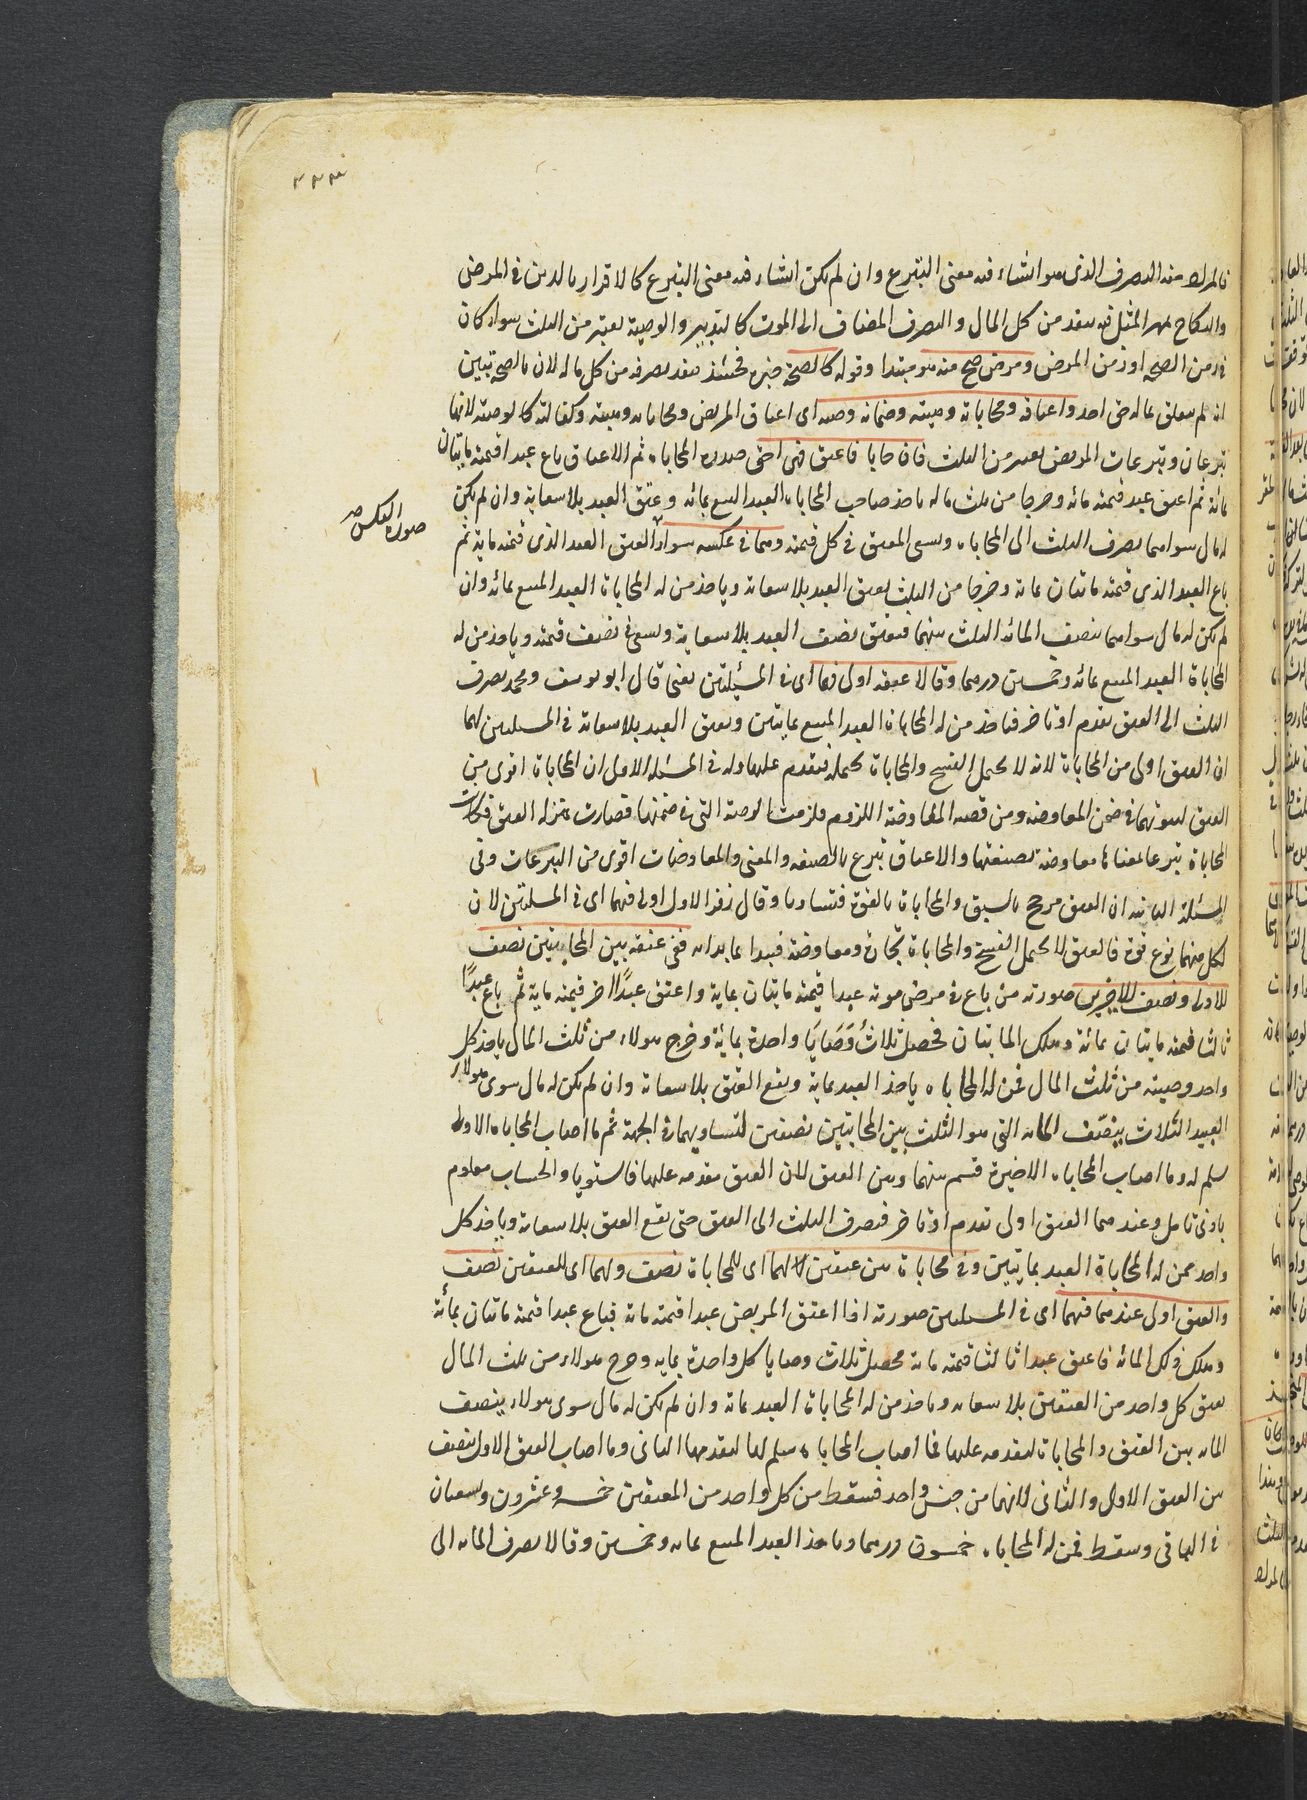 ٣٣٣
فالمراد منه التصرف الذى هو انشاء فيه معنى التبرع وان لم يكن انشاء فيه معنى التبرع كالاقرار بالدين فى المرض
والنكاح بمهر المثل فيه ينفذ من كل المال والتصرف المضاف الى الموت كالتدبير والوصية يعتبر من الثلث سواء كان
فى زمن الصحة او زمن المرض ومرض صح منه هو مبتدا وقوله كالصحة خبره فحينئذ ينفذ تصرفه من كل ماله لان بالصحة تبين
انه لم يتعلق بماله حق احد واعتاقه ومحاباته وهبته وضمانه وصية اى اعتاق المريض ومحاباته وهبته وكفالته كالوصية لانها
تبرعات وتبرعات المريض تعتبر من الثلث فان حابا فاعتق فهى احق صورة المحاباة ثم الاعتاق باع عبدا قيمته مايتان
بمائة ثم اعتق عبد قيمته مائة وخرجا من ثلث ماله ياخذ صاحب المحاباة العبد المبيع بمائة وعتق العبد بلا سعاية وان لم يكن
له مال سواهما يصرف الثلث الى المحاباة ويسعى المعتق فى كل قيمته وهما فى عكسه سواء العتق العبد الذى قيمته ماية ثم
صورة العكس صح
باع العبد الذى قيمته مايتان بماية وخرجا من الثلث يعتق العبد بلا سعاية وياخذ من له المحاباة العبد المبيع بمائة وان
لم يكن له مال سواهما ينصف المائة الثلث بينهما فيعتق نصف العبد بلا سعاية ويسعى فى نصف قيمته وياخذ من له
المحاباة العبد المبيع بمائة وخمسين درهما وقالا عتقه اولى فيهما اى فى المسئلتين يعنى قال ابو يوسف ومحمد يصرف
الثلث الى العتق تقدم او تاخر فياخذ من له المحاباة العبد المبيع بمايتين ويعتق العبد بلا سعاية فى المسئلتين لهما
ان العتق اولى من المحاباة لانه لا يحمل الفسخ والمحاباة يحمله فيقدم عليها وله فى المسئلة الاولى ان المحاباة اقوى من
العتق لثبوتها فى ضمن المعاوضة ومن قضية المعاوضة اللزوم فلزمت الوصية التى فى ضمنها فصارت بمنزلة العتق فكانت
المحاباة تبرعا لمعناها معاوضة بصيغتها والاعتاق تبرع بالصيغة والمعنى والمعاوضات اقوى من التبرعات وفى
المسئلة الثانية ان العتق مرجح بالسبق والمحاباة بالقوة فتساويا وقال زفر الاول اولى فيهما اى فى المسئلتين لان
لكل منهما نوع قوة فالعتق لا يحمل الفسخ والمحاباة تجارة ومعاوضة فيبدا بما بدا به ففى عتقه بين المحابيتين نصف
للاولى ونصف للاخيرين صورته من باع فى مرض موته عبدا قيمته مايتان بماية واعتق عبدًا اخر قيمته ماية ثم باع عبدًا
ثالثا قيمته مايتان بمائة وهلك المايتان فحصل ثلاثُ وَصَايَا واحدة بمائة وخرج هولاء من ثلث المال ياخذ كل
واحد وصيته من ثلث المال فمن له المحاباة ياخذ العبد بماية ويقع العتق بلا سعاية وان لم يكن له مال سوى هولاء
العبيد الثلاث ينصّف الماية التى هو الثلث بين المحابتين نصفين لتساويهما فى الجهة ثم ما اصاب المحاباة الاولى
سلم له وما اصاب المحاباة الاخيرة قسم بينهما وبين العتق لان العتق مقدم عليها فاستويا والحساب معلوم
بادنى تامل وعندهما العتق اولى تقدم او تاخر فيصرف الثلث الى العتق حتى يقع العتق بلا سعاية وياخذ كل
واحد ممن له المحاباة العبد بمايتين وفى محاباة بين عتقين لها اى للمحاباة نصف ولهما اى للعتقين نصف
والعتق اولى عندهما فيهما اى فى المسئلتين صورته اذا اعتق المريض عبدا قيمته ماية فباع عبدا قيمته مايتان بمائة
وهلك ذلك المائة فاعتق عبدا ثالثا قيمته ماية محصل ثلاث وصايا كل واحدة بماية وخرج هولاء من ثلث المال
يعتق كل واحد من العتقين بلا سعاية وياخذ من له المحاباة العبد بماية وان لم يكن له مال سوى هولاء ينصف
الماية بين العتق والمحاباة لتقدمه عليها فما اصاب المحاباة سلم لها لتقدمها الثانى وما اصاب العتق الاول ينصف
بين العتق الاول والثانى لانهما من جنس واحد فيسقط من كل واحد من المعتقين خمسة وعشرون ويسعيان
فى الباقى وسقط فمن له المحاباة خمسون درهما وياخذ العبد المبيع بماية وخمسين وقالا يصرف الماية الى